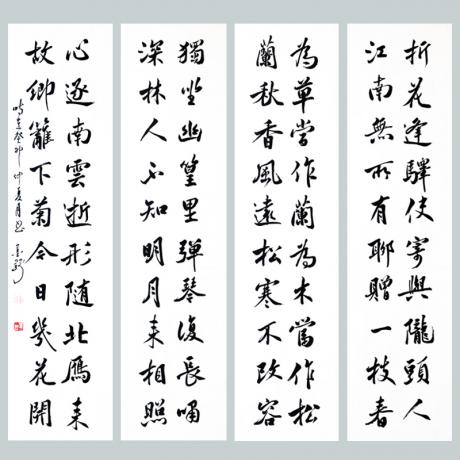 折花逢驛使寄與隴頭人
江南無所有聊贈一枝春
為草當作蘭為木當作松
蘭秋香風遠松寒不改容
獨坐幽篁里彈琴復長嘯
深林人不知明月來相照
心逐南雲逝形隨北雁來
故鄉籬下菊今日幾花開
時在癸卯仲夏月